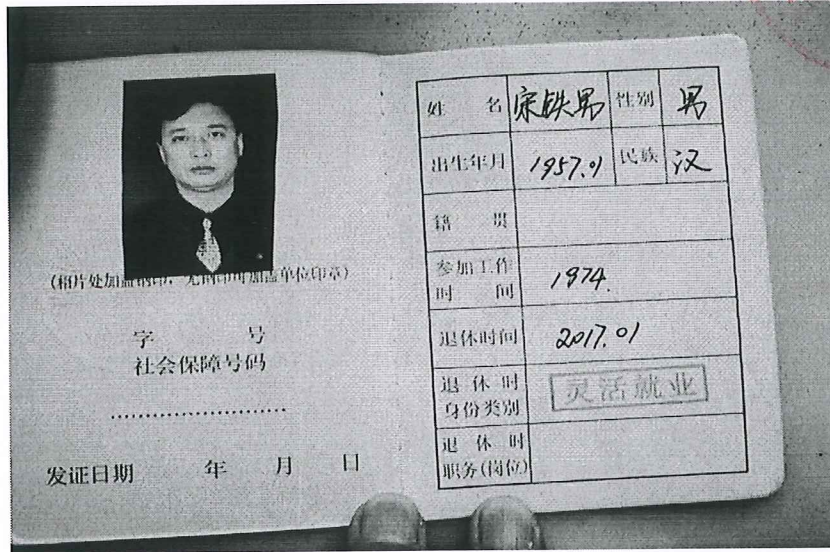 (相片处加盖钢印,无钢印可加盖单位印章)
字 号
社会保障号码
发证日期 年 月 日
姓 名 宋铁男 性别 男
出生年月 1957.01 民族 汉
籍 贯
参加工作
时 间 1974.
退休时间 2017.01
退 休 时
身份类别 灵活就业
退 休 时
职务(岗位)